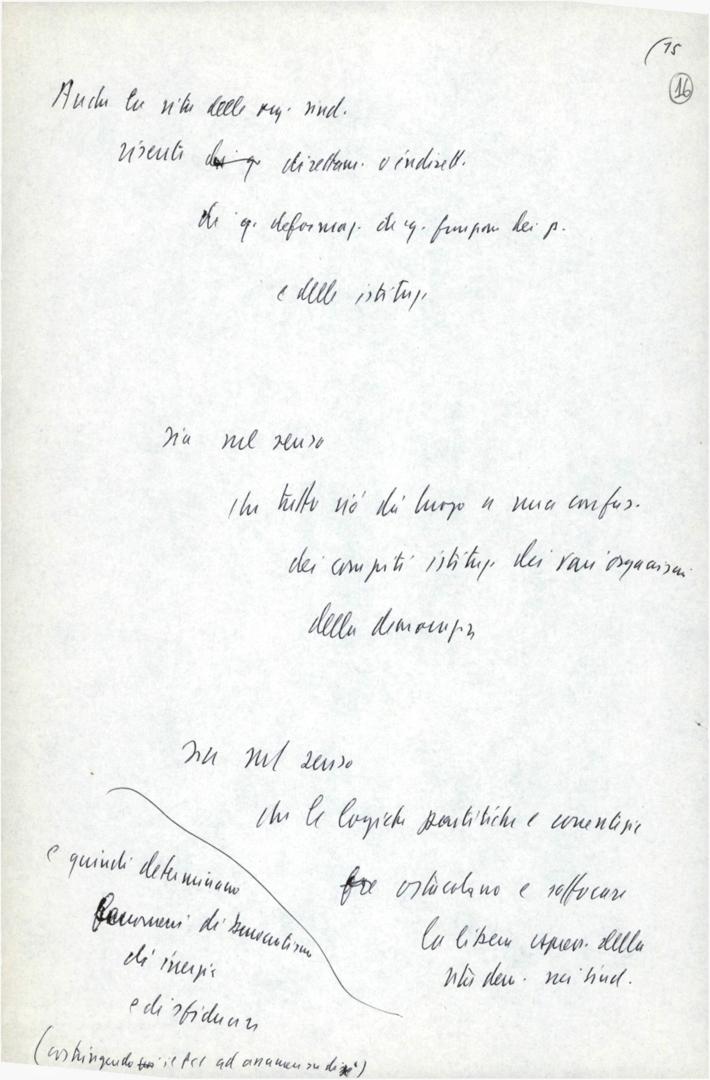 (15
16
Anche la vita delle org. sind.
risente direttam. o indirett.
di q. deformaz. di q. funzion dei p.
e delle istituz.
sia nel senso
che tutto ciò dà luogo a una confus.
dei compiti istituz. dei vari organismi
della democrazia
sia nel senso
che le logiche partitiche e correntizie
ostacolano e soffocare
la libera espres. della
vita dem. nei sind.
e quindi determinano
fenomeni di burocratismo
di inerzia
e di sfiducia
(costringendo il PCI ad